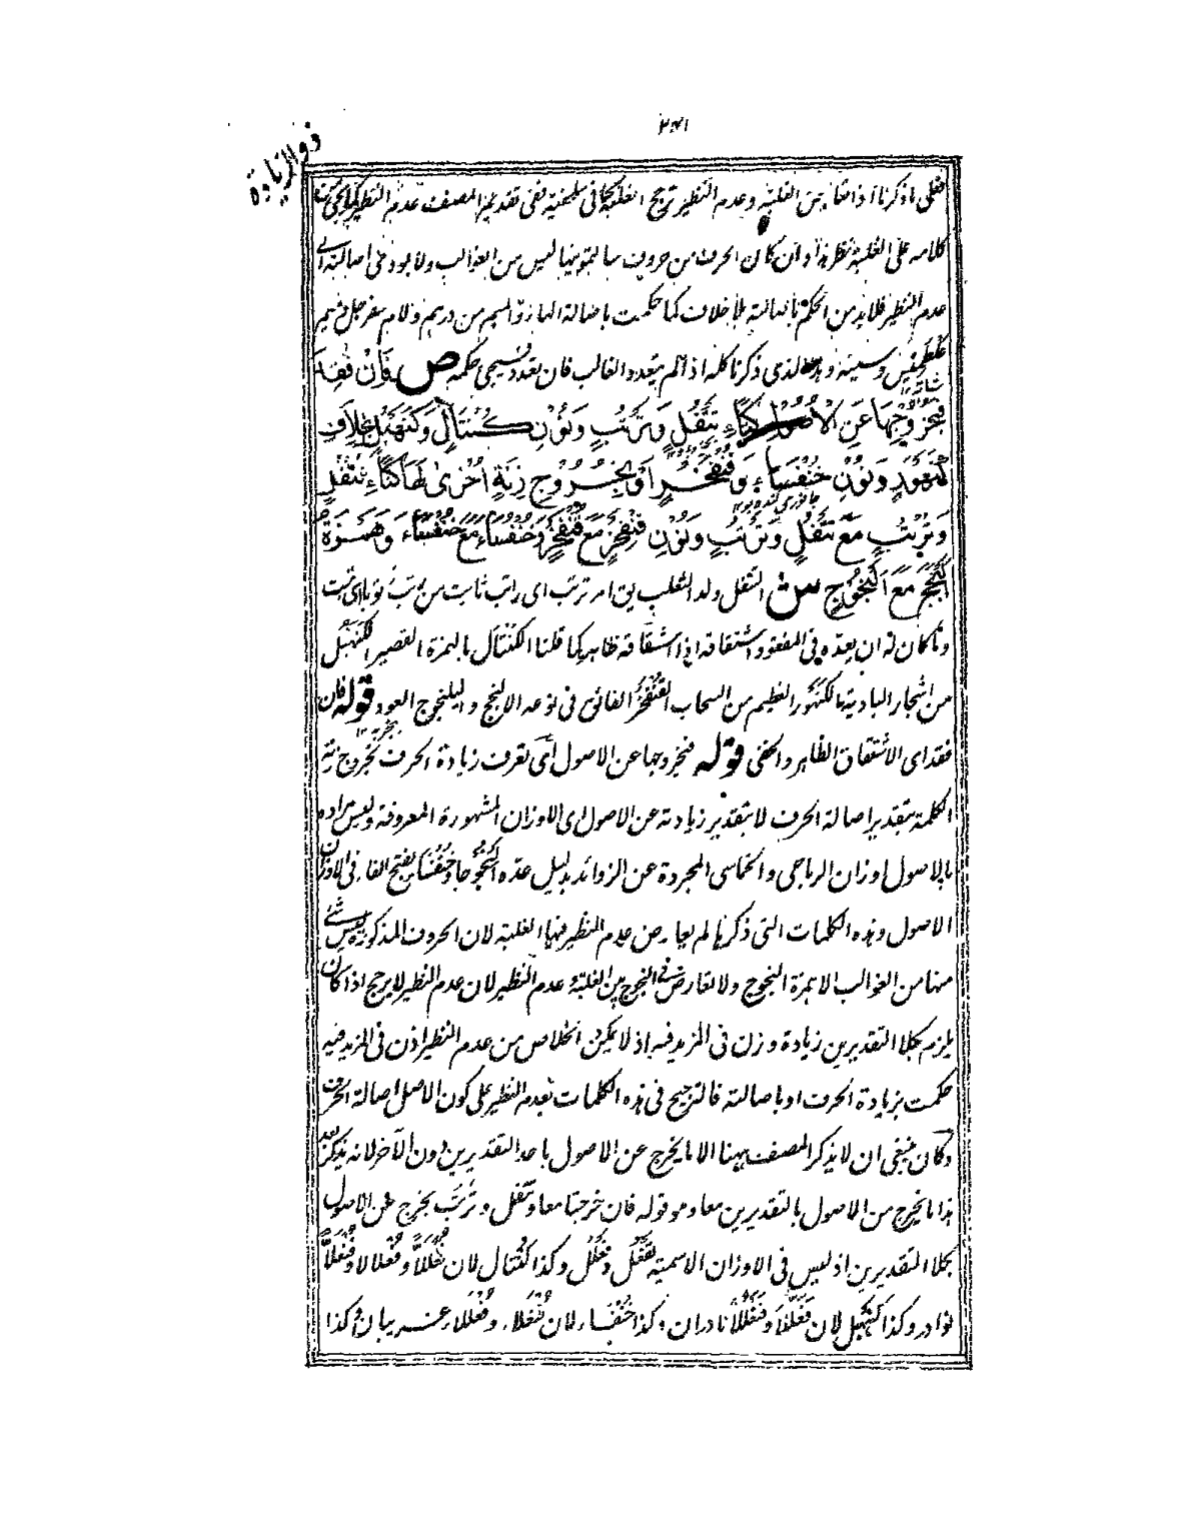 ذو الزيادة
۲۴۱
فعلى ما ذكرنا اذا تعارض الغلبة وعدم النظير ترجح الغلبة كما في سلحفية ففي تقديم المصنف عدم النظير كما يجئ في
كلامه على الغلبة نظر هذا وان كان الحرف من حروف سألتمونيها ليس من الغوالب ولا يؤدى اصالته الى
عدم النظير فلا بد من الحكم باصالته بلا خلاف كما حكمت باصالة الهاء والميم من درهم ولام سفرجل وميم
وسينه وهذا الذى ذكرنا كله اذا لم يتعدد الغالب فان تعدد فسيجئ حكمه ص فان فقد
فبخروجها عن الاصول كتاء تتفل وترتب ونون كنتأل وكنهبل بخلاف
كنهور ونون خنفساء وقنفخر او بخروج زنة اخرى لها كتاء تتفل
وترتب مع تتفل وترتب ونون قنفخر مع قنفخر وخنفساء مع خنفساء وهمزة
النجج مع النجوج ش التتفل ولد الثعلب يق امر ترتب اى راتب ثابت من رتب رتوبا اى ثبت
وما كان له ان يعده في المفقود اشتقاقه اذ اشتقاقه ظاهر كما قلنا الكنتأل بالهمزة القصير الكنهبل
من اشجار البادية الكنهور العظيم من السحاب القنفخر الفائق فى نوعه الالنجج واليلنجوج العود قوله فان
فقد اى الاشتقاق الظاهر والخفى قوله فبخروجها عن الاصول اى تعرف زيادة الحرف بخروج زنة
الكلمة بتقدير اصالة الحرف لا بتقدير زيادته عن الاصول اى الاوزان المشهورة المعروفة وليس مراده
بالاصول اوزان الرباعى والخماسى المجردة عن الزوائد بدليل عده النجوجا وخنفساء بفتح الفاء فى الاوزان
الاصول وهذه الكلمات التى ذكرها لم يعارض عدم النظير فيها الغلبة لان الحروف المذكورة ليس شئ
منها من الغوالب الا همزة النجوج ولا تعارض فى النجوج بين الغلبة و عدم النظير لان عدم النظير لا يرجح اذا كان
يلزم بكلا التقديرين زيادة وزن فى المزيد فيه اذ لا يمكن الخلاص من عدم النظير اذن فى المزيد فيه
حكمت بزيادة الحرف او باصالته فالترجيح فى هذه الكلمات بعدم النظير على كون الاصل اصالة الحرف
وكان ينبغى ان لا يذكر المصنف ههنا الا ما يخرج عن الاصول باحد التقديرين دون الآخر لانه يذكر بعد
هذا ما يخرج من الاصول بالتقديرين معا وهو قوله فان خرجتا معا وتتفل وترتب يخرج عن الاصول
بكلا التقديرين اذ ليس فى الاوزان الاسمية تفعل وفعلل وكذا كنتأل لان فعللا وفنعلا
نوادر وكذا كنهبل لان فعللا وفنعللا نادران وكذا خنفساء لان فنعلاء وفعللاء غريبان وكذا